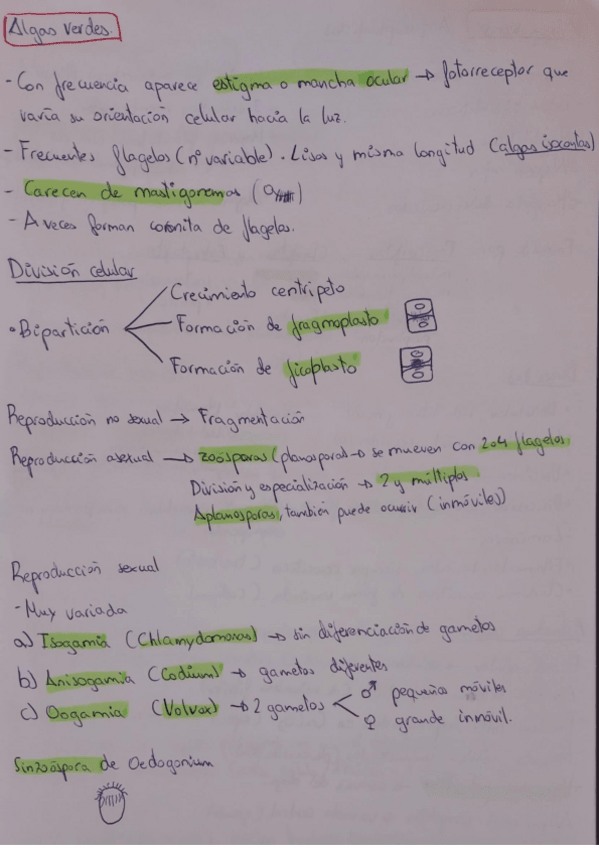 Algas verdes.
- Con frecuencia aparece estigma o mancha ocular → fotorreceptor que
varía su orientación celular hacia la luz.
- Frecuentes flagelos (nº variable). Lisos y misma longitud (algas isocontas)
- Carecen de mastigonemas
- A veces forman coronita de flagelos.
División celular
• Bipartición
Crecimiento centrípeto
Formación de fragmoplasto
Formación de ficoplasto
Reproducción no sexual → Fragmentación
Reproducción asexual → zoósporas (planosporas → se mueven con 2 o 4 flagelos,
División y especialización → 2 y múltiplos
Aplanosporas, también puede ocurrir (inmóviles)
Reproducción sexual
- Muy variada
a) Isogamia (Chlamydomonas) → sin diferenciación de gametos
b) Anisogamia (Codium) → gametos diferentes
c) Oogamia (Volvox) → 2 gametos
♂ pequeños móviles
♀ grande inmóvil.
Sinzoóspora de Oedogonium